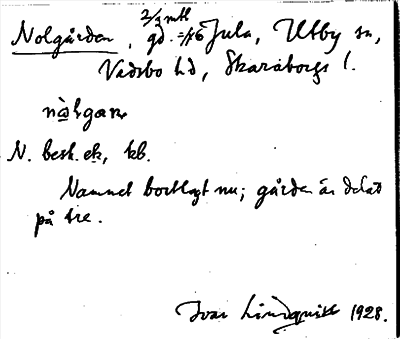 Nolgården, 2/3 mtl gd. Jula, Utby sn,
Vadsbo hd, Skaraborgs l.
N. besk. ek, kb.
Namnet bortlagt nu; gården är delad
på tre.
Ivar Lindquist 1928.